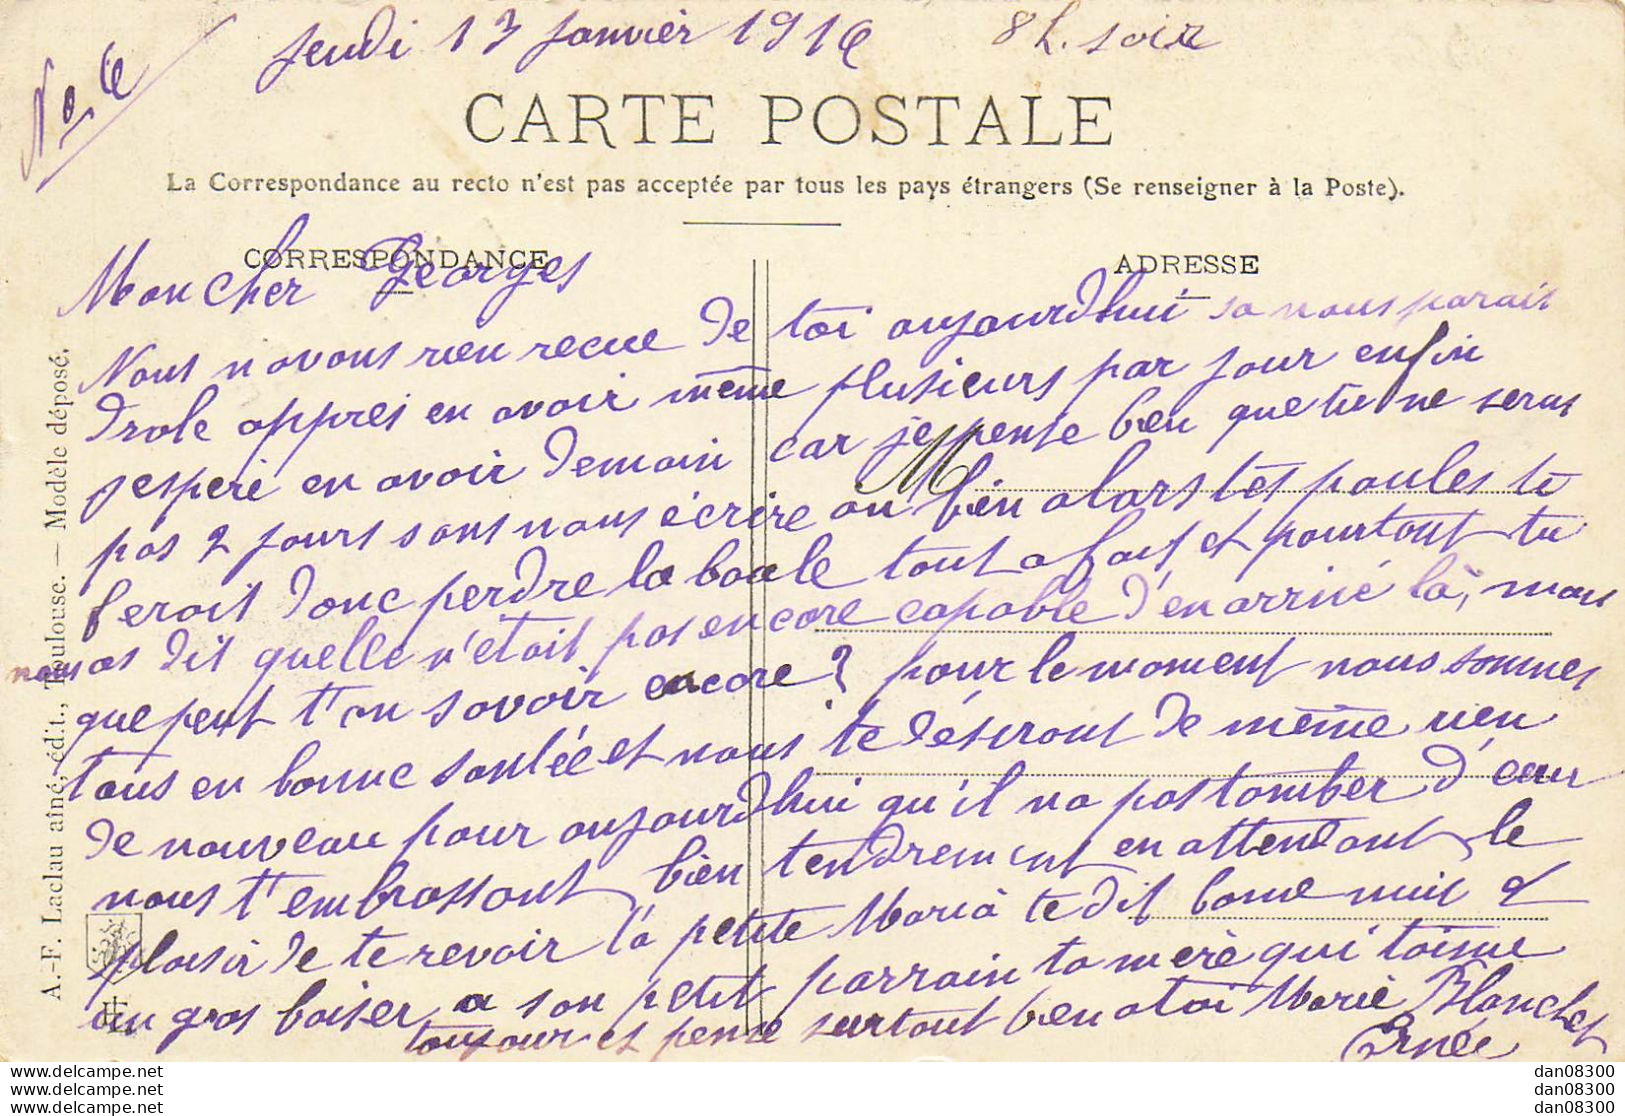 No 6
Jeudi 13 Janvier 1916 8h. soir
CARTE POSTALE
La Correspondance au recto n'est pas acceptée par tous les pays étrangers (Se renseigner à la Poste).
CORRESPONDANCE
ADRESSE
Mon cher Georges
Nous n avons rien recue de toi aujourdhui sa nous parait
drole apprei en avoir même plusieurs par jour enfin
jesperé en avoir demain car je pense bien que tu ne seras
M
pas 2 jours sans nous écrire ou bien alors tes poules te
feroit donc perdre la boule tout a fait et pourtout tu
nous as dit quelle n'étoit pas encore capable d'en arrivé là, mais
que peut t'on savoir encore ? pour le moment nous sommes
tous en bonne santée et nous te désirons de même rien
de nouveau pour aujourdhui qu'il na pas tomber d'eau
nous t'embrassont bien tendrement en attendant le
plaisir de te revoir la petite Maria te dit bonne nuit &
un gros baiser a son petit parrain ta mère qui t'aime
toujour et pense surtout bien a toi Marie Blanche
Ernée
A.-F. Laclau aîné, édit., Toulouse. — Modèle déposé.
dan08300
dan08300
dan08300
dan08300
dan08300
dan08300